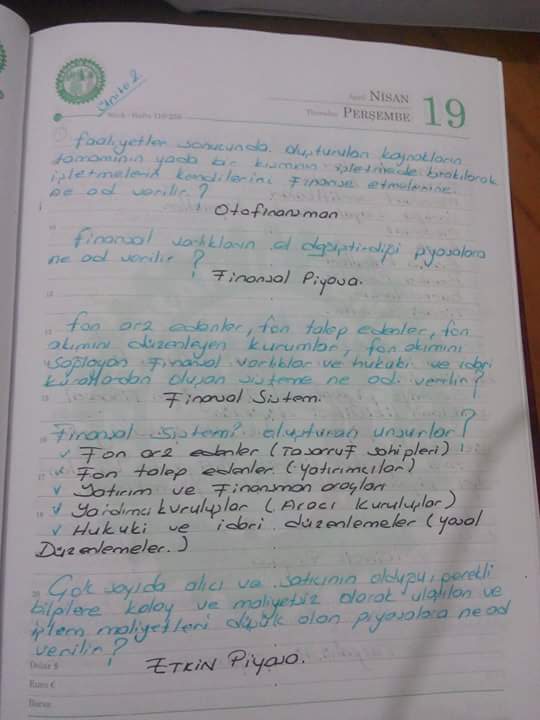 Ünite 2
April NİSAN
Thursday PERŞEMBE 19
faaliyetler sonucunda oluşturulan kaynakların
tamamının yada bir kısmının işletmede bırakılarak
işletmelerin kendilerini finanse etmelerine
ne ad verilir?
Otofinansman
finansal varlıkların el değiştirdiği piyasalara
ne ad verilir?
Finansal Piyasa.
12
13 fon arz edenler, fon talep edenler, fon
akımını düzenleyen kurumlar, fon akımını
sağlayan finansal varlıklar ve hukuki ve idari
kurallardan oluşan sisteme ne ad. verilir?
Finansal Sistem.
Finansal Sistemi oluşturan unsurlar?
✓ Fon arz edenler (Tasarruf sahipleri)
✓ Fon talep edenler (yatırımcılar)
✓ Yatırım ve finansman araçları
✓ Yardımcı kuruluşlar (Aracı kuruluşlar)
✓ Hukuki ve idari düzenlemeler (yasal
Düzenlemeler.)
Çok sayıda alıcı ve satıcının olduğu, gerekli
bilgilere kolay ve maliyetsiz olarak ulaşılan ve
işlem maliyetleri düşük olan piyasalara ne ad
verilir?
ETKİN Piyasa.
Dolar $
Euro €
Borsa